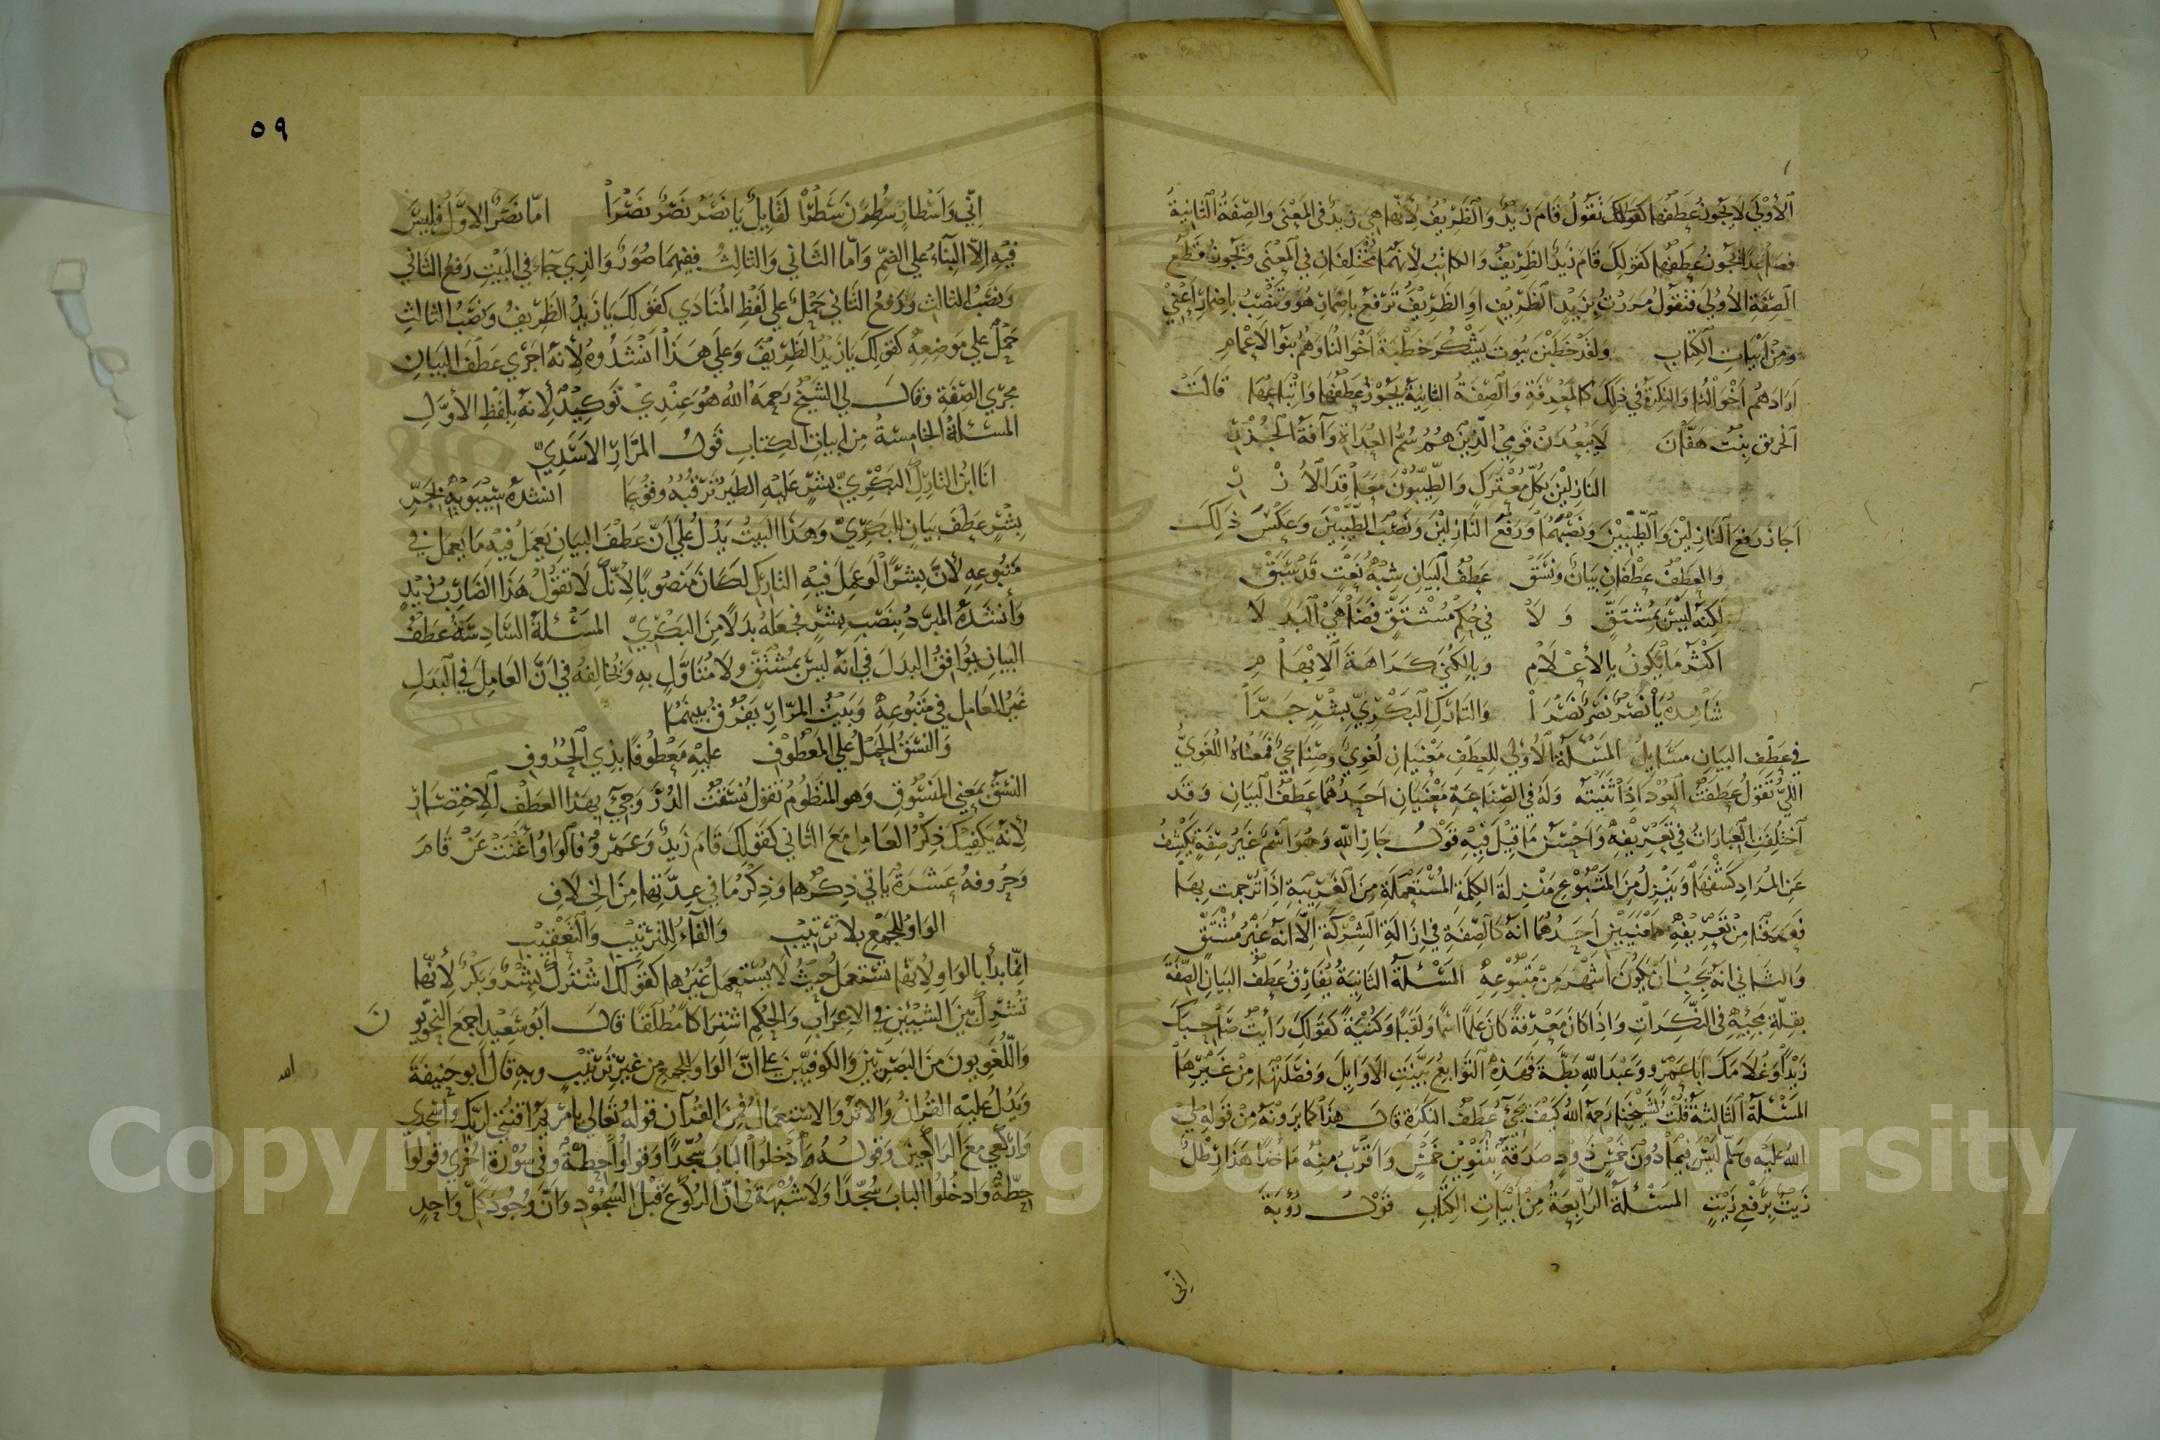 الأُولَى لا يجوز عطفها كقولك تقول قام زيد والظريف لأنها هي زيد في المعنى والصفة الثانية
فصاعدا يجوز عطفها كقولك قام زيد الظريف والكاتب لأنهما مختلفان في المعنى ويجوز قطع
الصفة الأولى فتقول مررت بزيد الظريف او الظريف ترفع باضمار هو وتنصب باضمار اعني
ومن ابيات الكتاب ولقد خبطن بيوت يشكر خبطة اخوالنا وهم بنوا الاعمام
اراد هم اخوالنا والنكرة في ذلك كالمعرفة والصفة الثانية يجوز عطفها واتباعها قالت
الخرنق بنت هفان لا يبعدن قومي الذين هم سم العداة وآفة الجزر
النازلين بكل معترك والطيبون معاقد الازر
اجاز رفع النازلين والطيبين ونصبهما ورفع النازلين ونصب الطيبين وعكس ذلك
والعطف عطفان بيان ونسق عطف البيان شبه نعت قد سبق
لكنه ليس بمشتق ولا في حكم مشتق فضاهي البدلا
اكثر ما يكون بالاعلام وبالكنى كراهة الابهام
شاهده يا نصر نصر نصرا والتارك البكري بشر جرا
في عطف البيان مسايل المسئلة الاولى للعطف معنيان لغوي وصناعي فمعناه اللغوي
اللي تقول عطفت العود اذا ثنيته وله في الصناعة معنيان احدهما عطف البيان وقد
اختلفت العبارات في تعريفه واحسن ما قيل فيه قول جار الله وهو اسم غير صفة يكشف
عن المراد كشفها وينزل من المتبوع منزلة الكلمة المستعملة من الغريبة اذا ترجمت بها
فعرفنا من تعريفه معنيين احدهما انه كالصفة في ازالة الشركة الا انه غير مشتق
والثاني انه يجب ان يكون اشهر من متبوعه المسئلة الثانية يفارق عطف البيان الصفة
بقلة مجيئه في النكرات واذا كان معرفة كان علما اسما ولقبا وكنية كقولك رأيت صاحبك
زيدا وغلامك ابا عمرو وعبد الله بطة فهذه التوابع بينت الاوايل وفصلتها من غيرها
المسئلة الثالثة قلت لشيخنا رحمه الله كيف يجيء عطف النكرة قال هذا كما يرونه من قوله صلى
الله عليه وسلم ليس فيما دون خمس ذود صدقة بتنوين خمس واقرب منه ما خذا هذا رطل
زيت برفع زيت المسئلة الرابعة من ابيات الكتاب قول رؤبة
اني
٥٩
اني واسطار سطرن سطرا لقايل يا نصر نصر نصرا اما نصر الاول فليس
فيه الا البناء على الضم واما الثاني والثالث ففيهما صور والذي جاء في البيت رفع الثاني
ونصب الثالث ورفع الثاني حمل على لفظ المنادي كقولك يا زيد الظريف ونصب الثالث
حمل على موضعه كقولك يا زيد الظريف وعلى هذا انشدوه لأنه اجري عطف البيان
مجرى الصفة وقال لي الشيخ رحمه الله هو عندي توكيد لأنه بلفظ الأول
المسئلة الخامسة من ابيات الكتاب قول المرار الاسدي
انا ابن التارك البكري بشر عليه الطير ترقبه وقوعا انشده سيبويه بجر
بشر عطف بيان للبكري وهذا البيت يدل على ان عطف البيان يعمل فيه ما يعمل في
متبوعه لأن بشرا لو عمل فيه التارك لكان منصوبا لأنك لا تقول هذا الضارب زيد
وأنشده المبرد بنصب بشر فجعله بدلا من البكري المسئلة السادسة عطف
البيان يوافق البدل في انه ليس بمشتق ولا متاول به ويخالفه في ان العامل في البدل
غير العامل في متبوعه وبيت المرار يفرق بينهما
والنسق الحمل على المعطوف عليه معطوفا بذي الحروف
النسق بمعنى المنسوق وهو المنظوم تقول نسقت الدر وجيء بهذا العطف للاختصار
لأنه يكفيك ذكر العامل مع الثاني كقولك قام زيد وعمرو فالواو أغنت عن قام
وحروفه عشرة ياتي ذكرها وذكر ما في عدتها من الخلاف
الواو للجمع بلا ترتيب والفاء للترتيب والتعقيب
انما بدأ بالواو لأنها تستعمل حيث لا يستعمل غيرها كقولك اشترك بشر وبكر لأنها
تشرك بين الشيئين في الاعراب والحكم اشتراكا مطلقا قال ابو سعيد اجمع النحويو
ن
واللغويون من البصريين والكوفيين على ان الواو للجمع من غير ترتيب وبه قال أبو حنيفة
الله
ويدل عليه القرآن والاثر والاستعمال فمن القرآن قوله تعالى يا مريم اقنتي لربك واسجدي
واركعي مع الراكعين وقوله وادخلوا الباب سجدا وقولوا حطة وفي سورة اخرى وقولوا
حطة وادخلوا الباب سجدا ولا شبهة في ان الركوع قبل السجود وان وجود كل واحد
Copyright © King Saud University